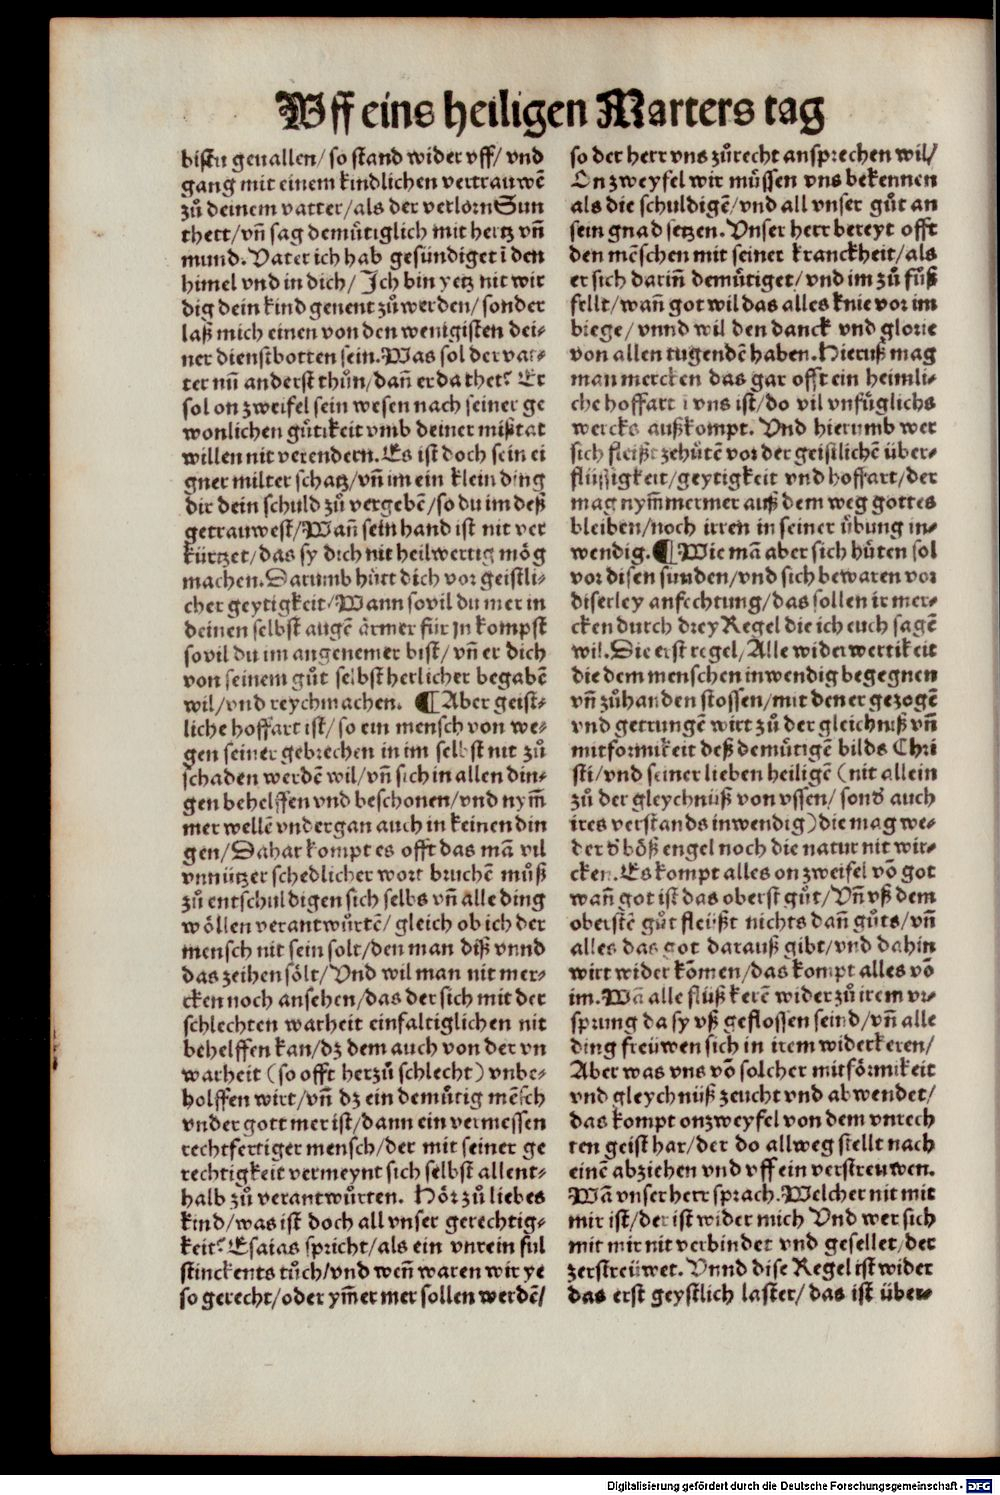 Vff eins heiligen Marters tag
bistu geuallen/ so stand wider vff/ vnd
gang mit einem kindlichen vertrauwē
zů deinem vatter/als der verlorn Sun
thett/vñ sag demütiglich mit hertz vñ
mund. Vater ich hab gesündiget ī den
himel vnd in dich/ Ich bin yetz nit wir
dig dein kind genent zů werden/ sonder
laß mich einen von den wenigisten dei-
ner dienstbotten sein. Was sol der vat-
ter nun̄ anderst thůn/dañ er da thet? Er
sol on zweifel sein wesen nach seiner ge
wonlichen gütikeit vmb deiner mißtat
willen nit verendern. Es ist doch sein ei
gner milter schatz/vñ im ein klein ding
dir dein schuld zů vergebē/so du im deß
getrauwest/Wañ sein hand ist nit ver
kürtzet/das sy dich nit heilwertig mög
machen. Darumb hütt dich vor geistli-
cher geytigkeit/Wann souil du mer in
deinen selbst augē ärmer für jn kompst
souil du im angenemer bist/ vñ er dich
von seinem gůt selbst herlicher begabē
wil/vnd reychmachen. ¶ Aber geist-
liche hoffart ist/ so ein mensch von we-
gen seiner gebrechen in im selbst nit zů
schaden werdē wil/vñ sich in allen din-
gen behelffen vnd beschonen/vnd nym̄
mer wellē vndergan auch in keinen din
gen/Dahar kompt es offt das mā vil
vnnützer schedlicher wort bruchē můß
zů entschuldigen sich selbs vñ alle ding
wöllen verantwürtē/ gleich ob ich der
mensch nit sein solt/den man diß vnnd
das zeihen sölt/Vnd wil man nit mer-
cken noch ansehen/das der sich mit der
schlechten warheit einfaltiglichen nit
behelffen kan/dz dem auch von der vn
warheit (so offt herzů schlecht) vnbe-
holffen wirt/vñ dz ein demütig mēsch
vnder gott mer ist/dann ein vermessen
rechtfertiger mensch/der mit seiner ge
rechtigkeit vermeynt sich selbst allent-
halb zů verantwürten. Hör zů liebes
kind/was ist doch all vnser gerechtig-
keit? Esaias spricht/als ein vnrein ful
stinckents tůch/vnd weñ waren wir ye
so gerecht/oder ym̄er mer sollen werdē/
so der herr vns zůrecht ansprechen wil/
On zweyfel wir müssen vns bekennen
als die schuldigē/vnd all vnser gůt an
sein gnad setzen. Vnser herr bereyt offt
den mēschen mit seiner kranckheit/als
er sich darin̄ demütiget/vnd im zů fůß
fellt/wañ got wil das alles knie vor im
biege/vnnd wil den danck vnd glorie
von allen tugendē haben. Hieruß mag
man mercken das gar offt ein heimli-
che hoffart i vns ist/do vil vnfůglichs
wercks außkompt. Vnd hierumb wer
sich fleißt zehütē vor der geistlichē über-
flüssigkeit/geytigkeit vnd hoffart/der
mag nym̄mermer auß dem weg gottes
bleiben/noch irren in seiner übung in-
wendig. ¶ Wie mā aber sich hüten sol
vor disen sunden/vnd sich bewaren vor
diserley anfechtung/das sollen ir mer-
cken durch drey Regel die ich euch sagē
wil. Die erst regel/Alle widerwertikeit
die dem menschen inwendig begegnen
vñ zůhanden stossen/mit den er gezogē
vnd getrungē wirt zů der gleichniß vñ
mitformikeit deß demütigē bilds Chri
sti/vnd seiner lieben heiligē (nit allein
zů der gleychnüß von vssen/ sond͛ auch
ires verstands inwendig) die mag we-
der d͛ böß engel noch die natur nit wir-
cken. Es kompt alles on zweifel vō got
wañ got ist das oberst gůt/Vñ vß dem
oberstē gůt fleüßt nichts dañ gůts/vñ
alles das got darauß gibt/vnd dahin
wirt wider kōmen/das kompt alles vō
im. Wā alle flüß kerē wider zů irem vr-
sprung da sy vß geflossen seind/vñ alle
ding freüwen sich in irem widerkeren/
Aber was vns vō solcher mitförmikeit
vnd gleychnüß zeucht vnd abwendet/
das kompt onzweyfel von dem vnrech
ten geist har/der do allweg stellt nach
einē abziehen vnd vff ein verstreuwen.
Wā vnser herr sprach. Welcher nit mit
mir ist/der ist wider mich Vnd wer sich
mit mir nit verbindet vnd gesellet/der
zerstreüwet. Vnnd dise Regel ist wider
das erst geystlich laster/ das ist über-
Digitalisierung gefördert durch die Deutsche Forschungsgemeinschaft - DFG